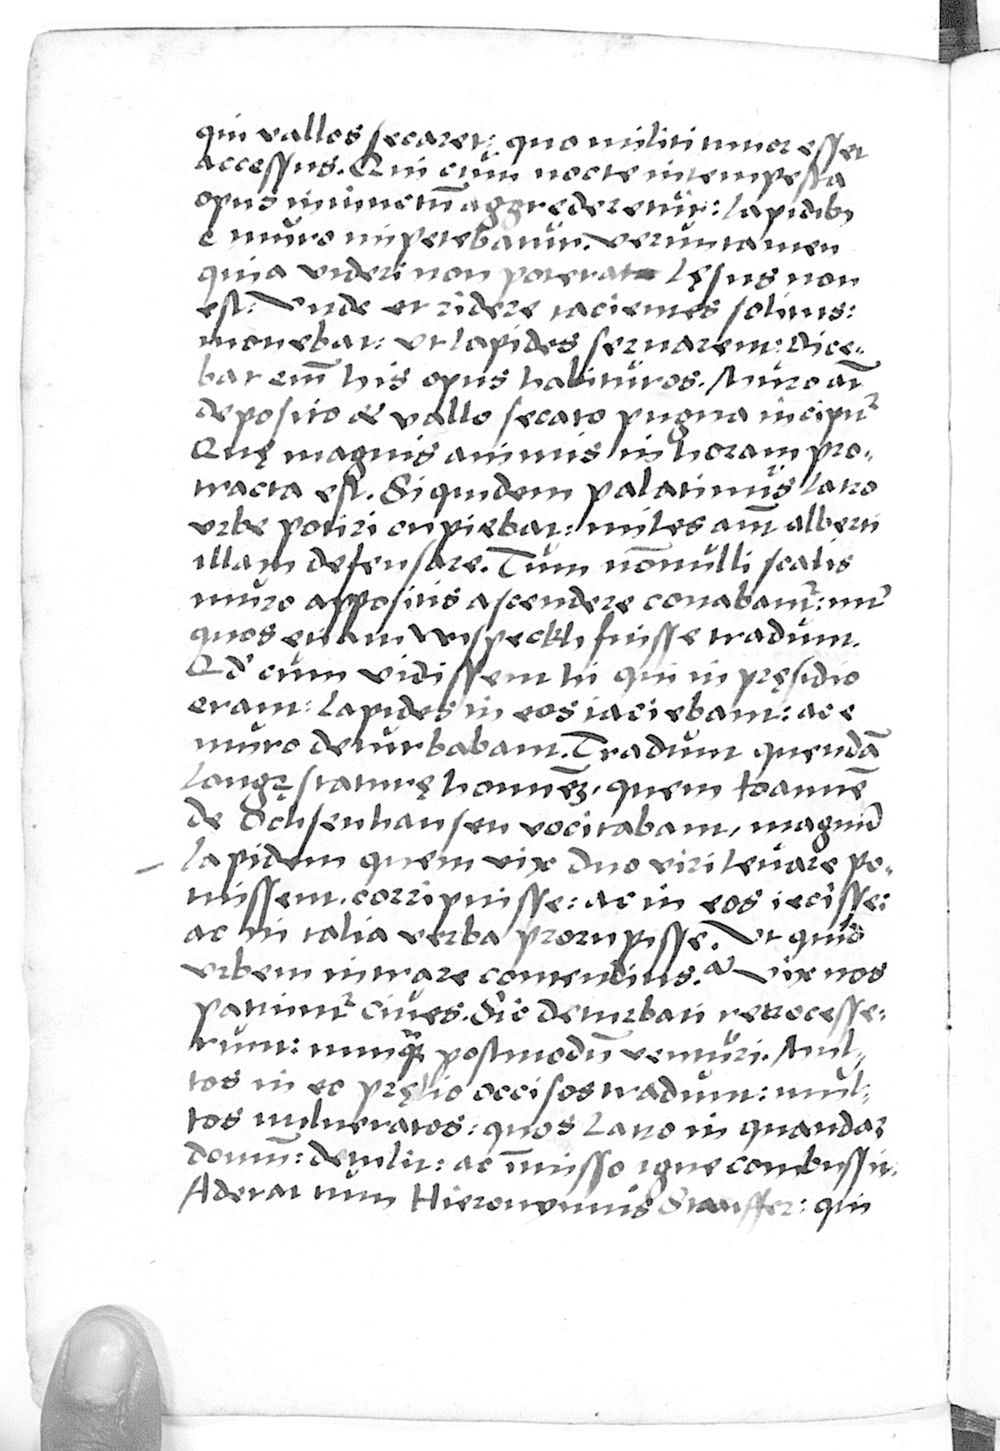 qui vallos secaret: quo militi tutior esset
accessus. Qui cum nocte intempesta
opus iniunctū aggrederetur: lapidibꝰ
e muro impetebatur. Veruntamen
quia videri non poterat lęsus non
est: Vnde et ridere iacientes solitus:
monebat: vt lapides seruarent: dice-
bat em̄ his opus habituros. Muro aūt
deposito & vallo secato pugna incipit᷑
Quę magnis animis in horam pro-
tracta est. Siquidem palatinus Latro
vrbe potiri cupiebat: miles aūt alberti
illam defensare. Tum nōnulli scalis
muro appositis ascendere conabant᷑: int᷑
quos etiam Wispeckh fuisse tradunt.
Qd' cum vidissent hi qui in pręsidio
erant: Lapides in eos iaciebant: ac e
muro deturbabant. Tradunt quendā
Longę staturę hominē, quem Ioannē
de Ochsenhausen vocitabant, magnū
lapidem quem vix duo viri leuare po-
tuissent. corripuisse: ac in eos iecisse:
ac in talia verba prorupisse. Vt quid
vrbem intrare contenditis. Vix nos
patimur᷑ ciues. Sic deturbati retrocesse-
runt: nunqꝫ postmodū venturi. Mul-
tos in eo pręlio occisos tradunt: mul-
tos vulneratos: quos Latro in quandaꝫ
domū: detulit: ac īmisso igne combussit.
Aderat tum Hieronymus Stauffer: qui